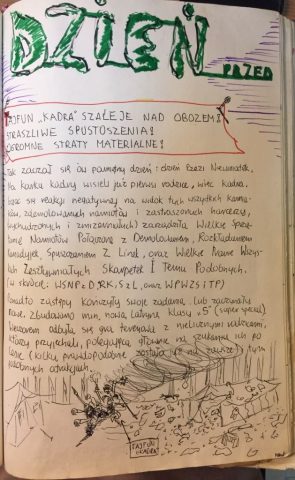 DZIEŃ
PRZED
TAJFUN „KADRA" SZALEJE NAD OBOZEM!
STRASZLIWE SPUSTOSZENIA!
OGROMNE STRATY MATERIALNE!
Tak zaczął się ów pamiętny dzień: dzień Rzezi Niewiniątek.
Na karku kadry wisieli już pierwsi rodzice, więc kadra
bojąc się reakcji negatywnej na widok tych wszystkich
zdemolowanych namiotów i zastraszonych harcerzy,
(wychudzonych i zmizerniałych) zarządziła Wielkie Sprzą-
tanie Namiotów Połączone z Demolowaniem, Rozkładaniem
Kanadyjek, Spuszczaniem Z Lin, oraz Wielkie Pranie Wszys-
tkich Zeszmaconych Skarpetek I Temu Podobnych.
(w skrócie: WSNP z D, RK, SzL, oraz WPWZS i TP)
Ponadto zastępy kończyły swoje zadania, lub zaczynały
nowe. Zbudowano m.in. nową latrynę klasy „S" (super special)
Wieczorem odbyła się gra terenowa z nielicznymi rodzicami,
którzy przyjechali, polegająca głównie na szukaniu ich po
lesie (kilku prawdopodobnie zostało już na zawsze) i tym
podobnych atrakcjach.
TAJFUN
„KADRA"